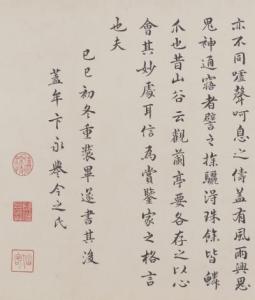 亦不同噓聲呵息之儔蓋有風雨興思
鬼神通寤者譬之探驪得珠餘皆鱗
爪也昔山谷云觀蘭亭要各存之以心
會其妙處耳信為賞鑒家之格言
也夫
己巳初冬重裝畢遂書其後
蓋牟卞永譽令之氏